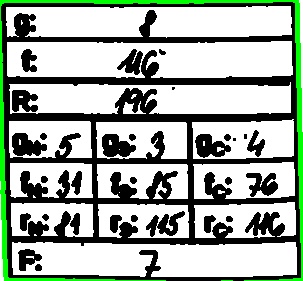 g: 8
t: 116
R: 196
g_A: 5 g_B: 3 g_C: 4
t_A: 31 t_B: 85 t_C: 76
r_A: 81 r_B: 115 r_C: 116
F: 7